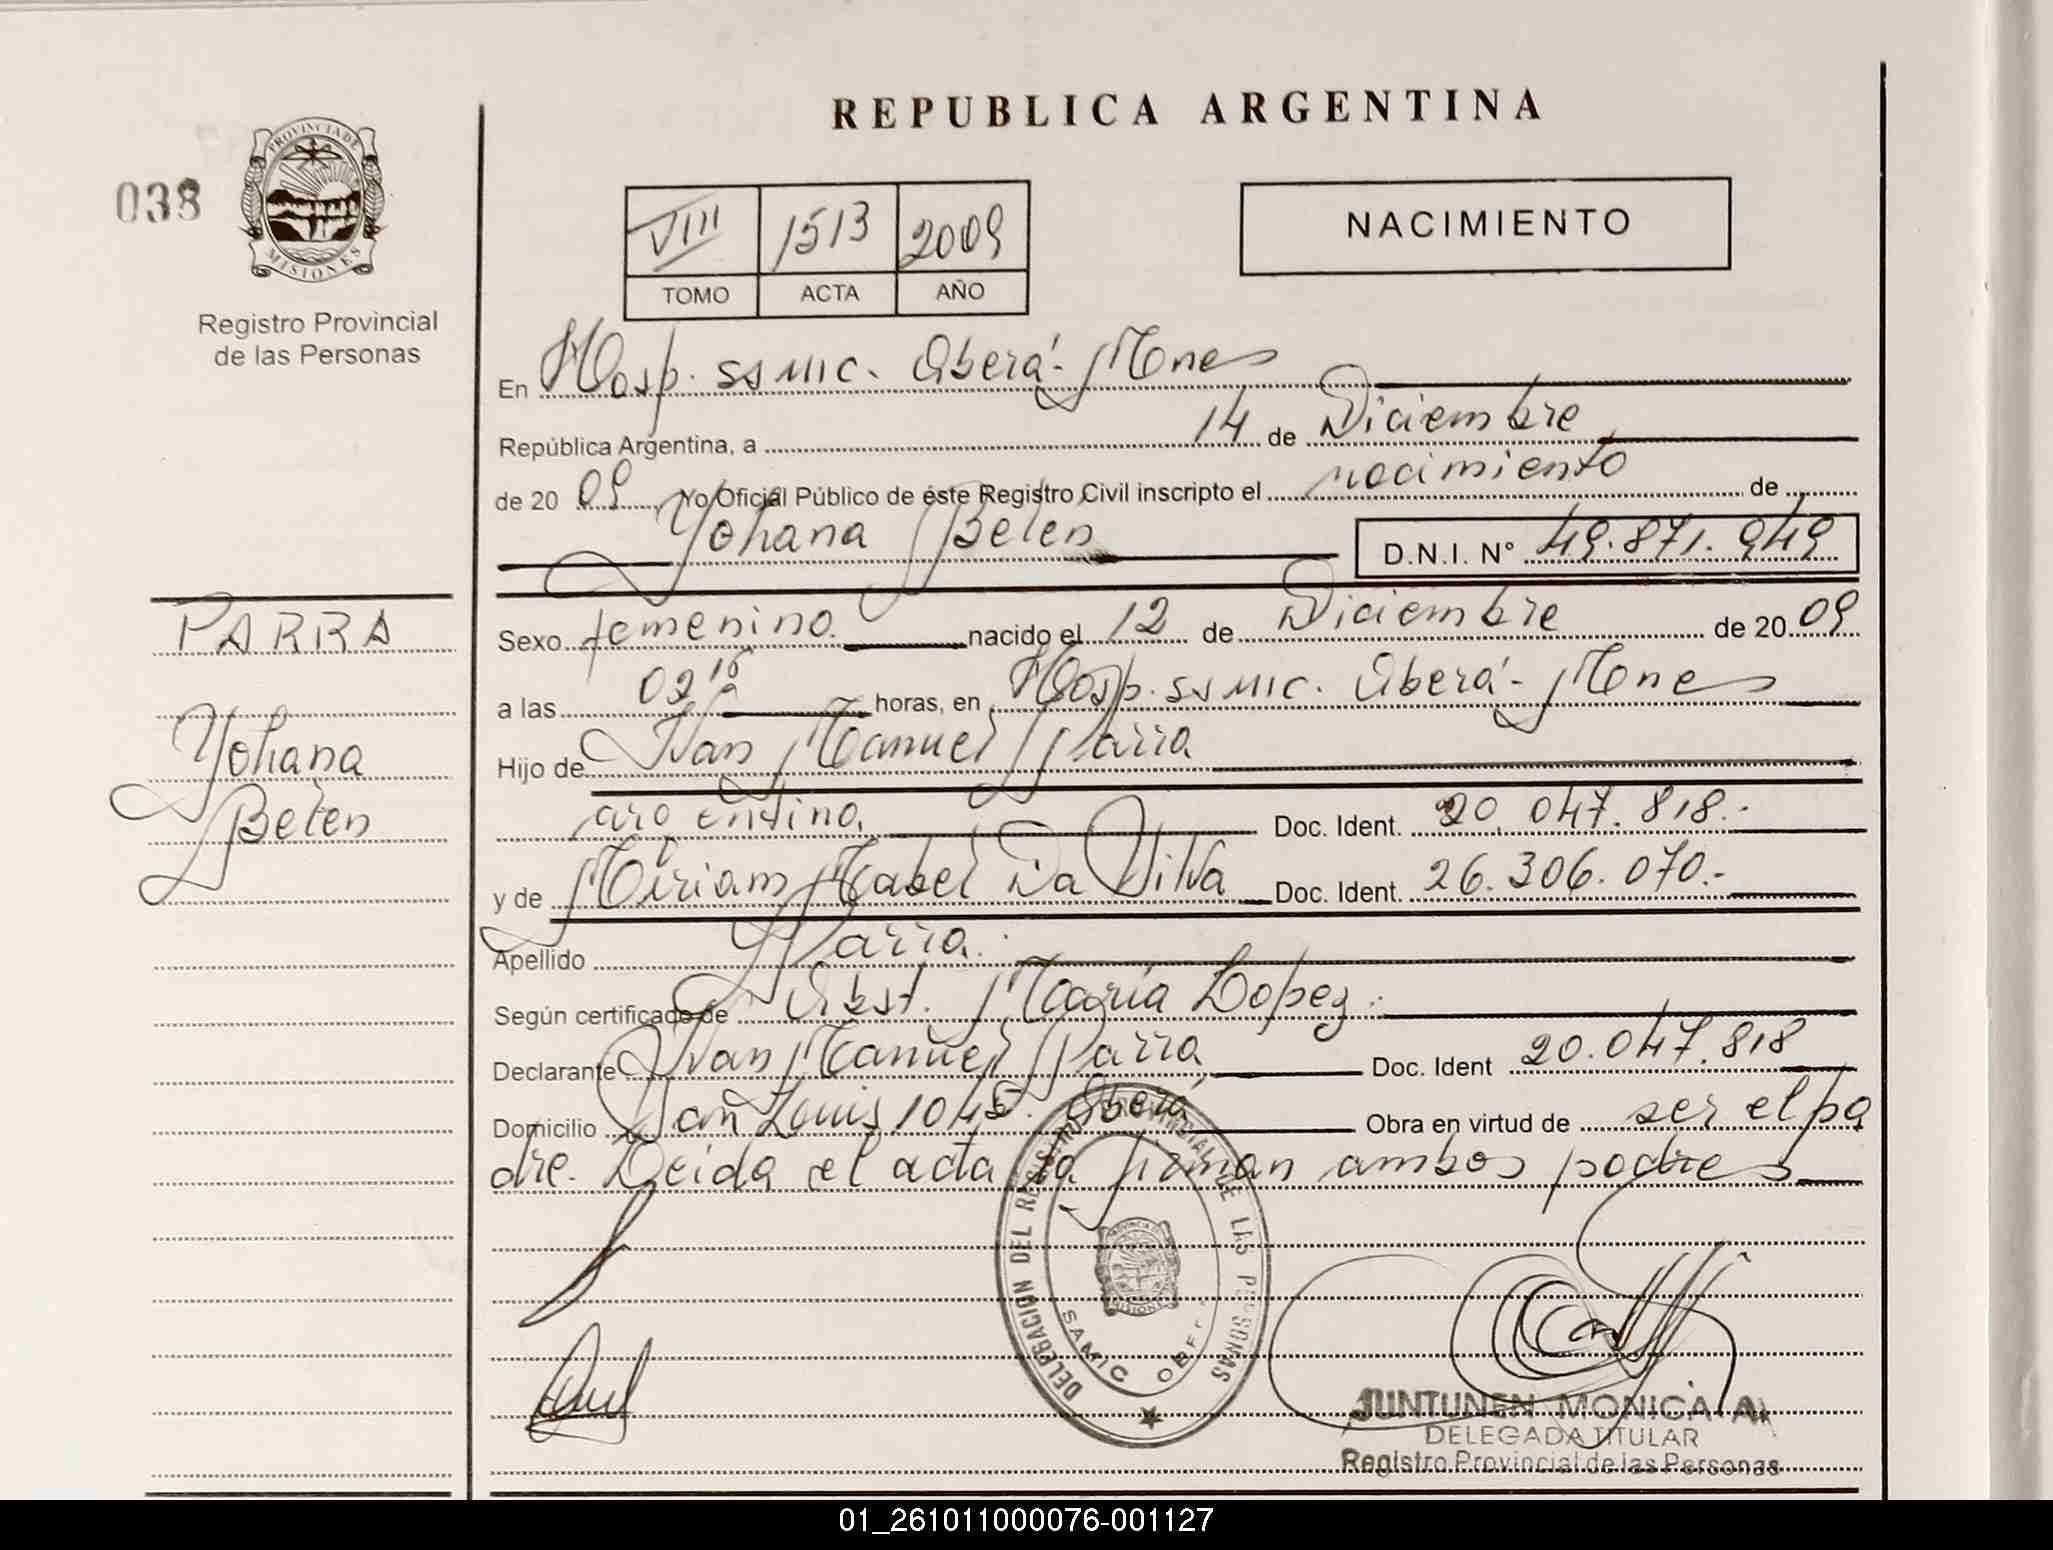 REPUBLICA ARGENTINA
038
PROVINCIA DE
MISIONES
Registro Provincial
de las Personas
VIII 1513 2009
TOMO ACTA AÑO
NACIMIENTO
En Hosp. SAMIC. Oberá - Mnes
República Argentina, a 14 de Diciembre
de 20 09, Yo Oficial Público de éste Registro Civil inscripto el nacimiento de
Yohana Belen
D.N.I. N° 49.871.949
PARRA
Yohana
Belen
Sexo femenino nacido el 12 de Diciembre de 20 09
a las 02 15 horas, en Hosp. SAMIC. Oberá - Mnes
Hijo de Ivan Manuel Parra
argentino, Doc. Ident. 20.047.818.-
y de Miriam Mabel Da Silva Doc. Ident. 26.306.070.-
Apellido Parra.
Según certificado de Obst. María Lopez.
Declarante Ivan Manuel Parra Doc. Ident 20.047.818
Domicilio San Luis 1045. Oberá Obra en virtud de ser el pa
dre. Leida el acta la firman ambos padres
DELEGACION DEL REGISTRO PROVINCIAL DE LAS PERSONAS
SAMIC
JUNTUNEN MONICA A.
DELEGADA TITULAR
Registro Provincial de las Personas
01_261011000076-001127